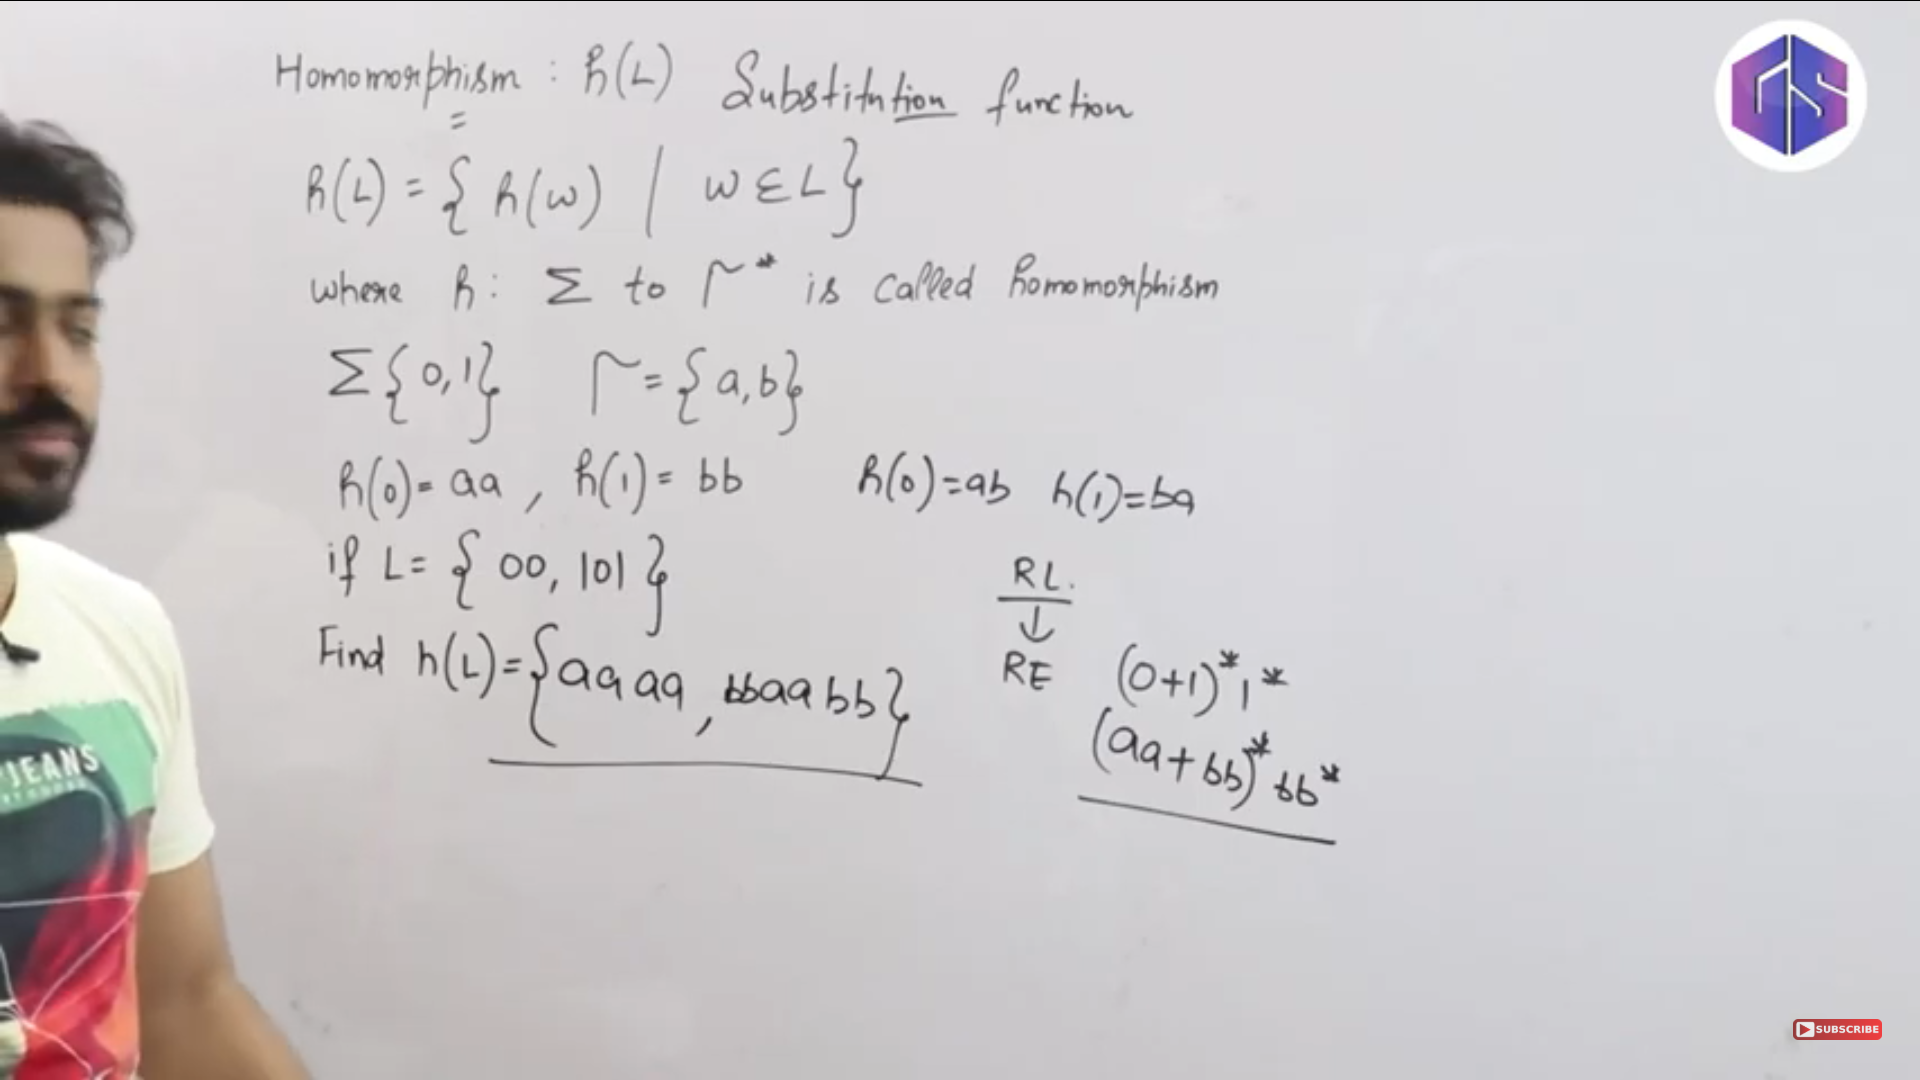 Homomorphism : h(L) Substitution function
h(L) = { h(w) / w ∈ L }
where h: Σ to Γ* is called homomorphism
Σ{0,1} Γ = {a,b}
h(0) = aa , h(1) = bb h(0)=ab h(1)=ba
if L = { 00, 101 }
RL.
↓
Find h(L) = {aaaa, bbaabb}
RE (0+1)* 1*
(aa+bb)* bb*
JEANS
GS
SUBSCRIBE